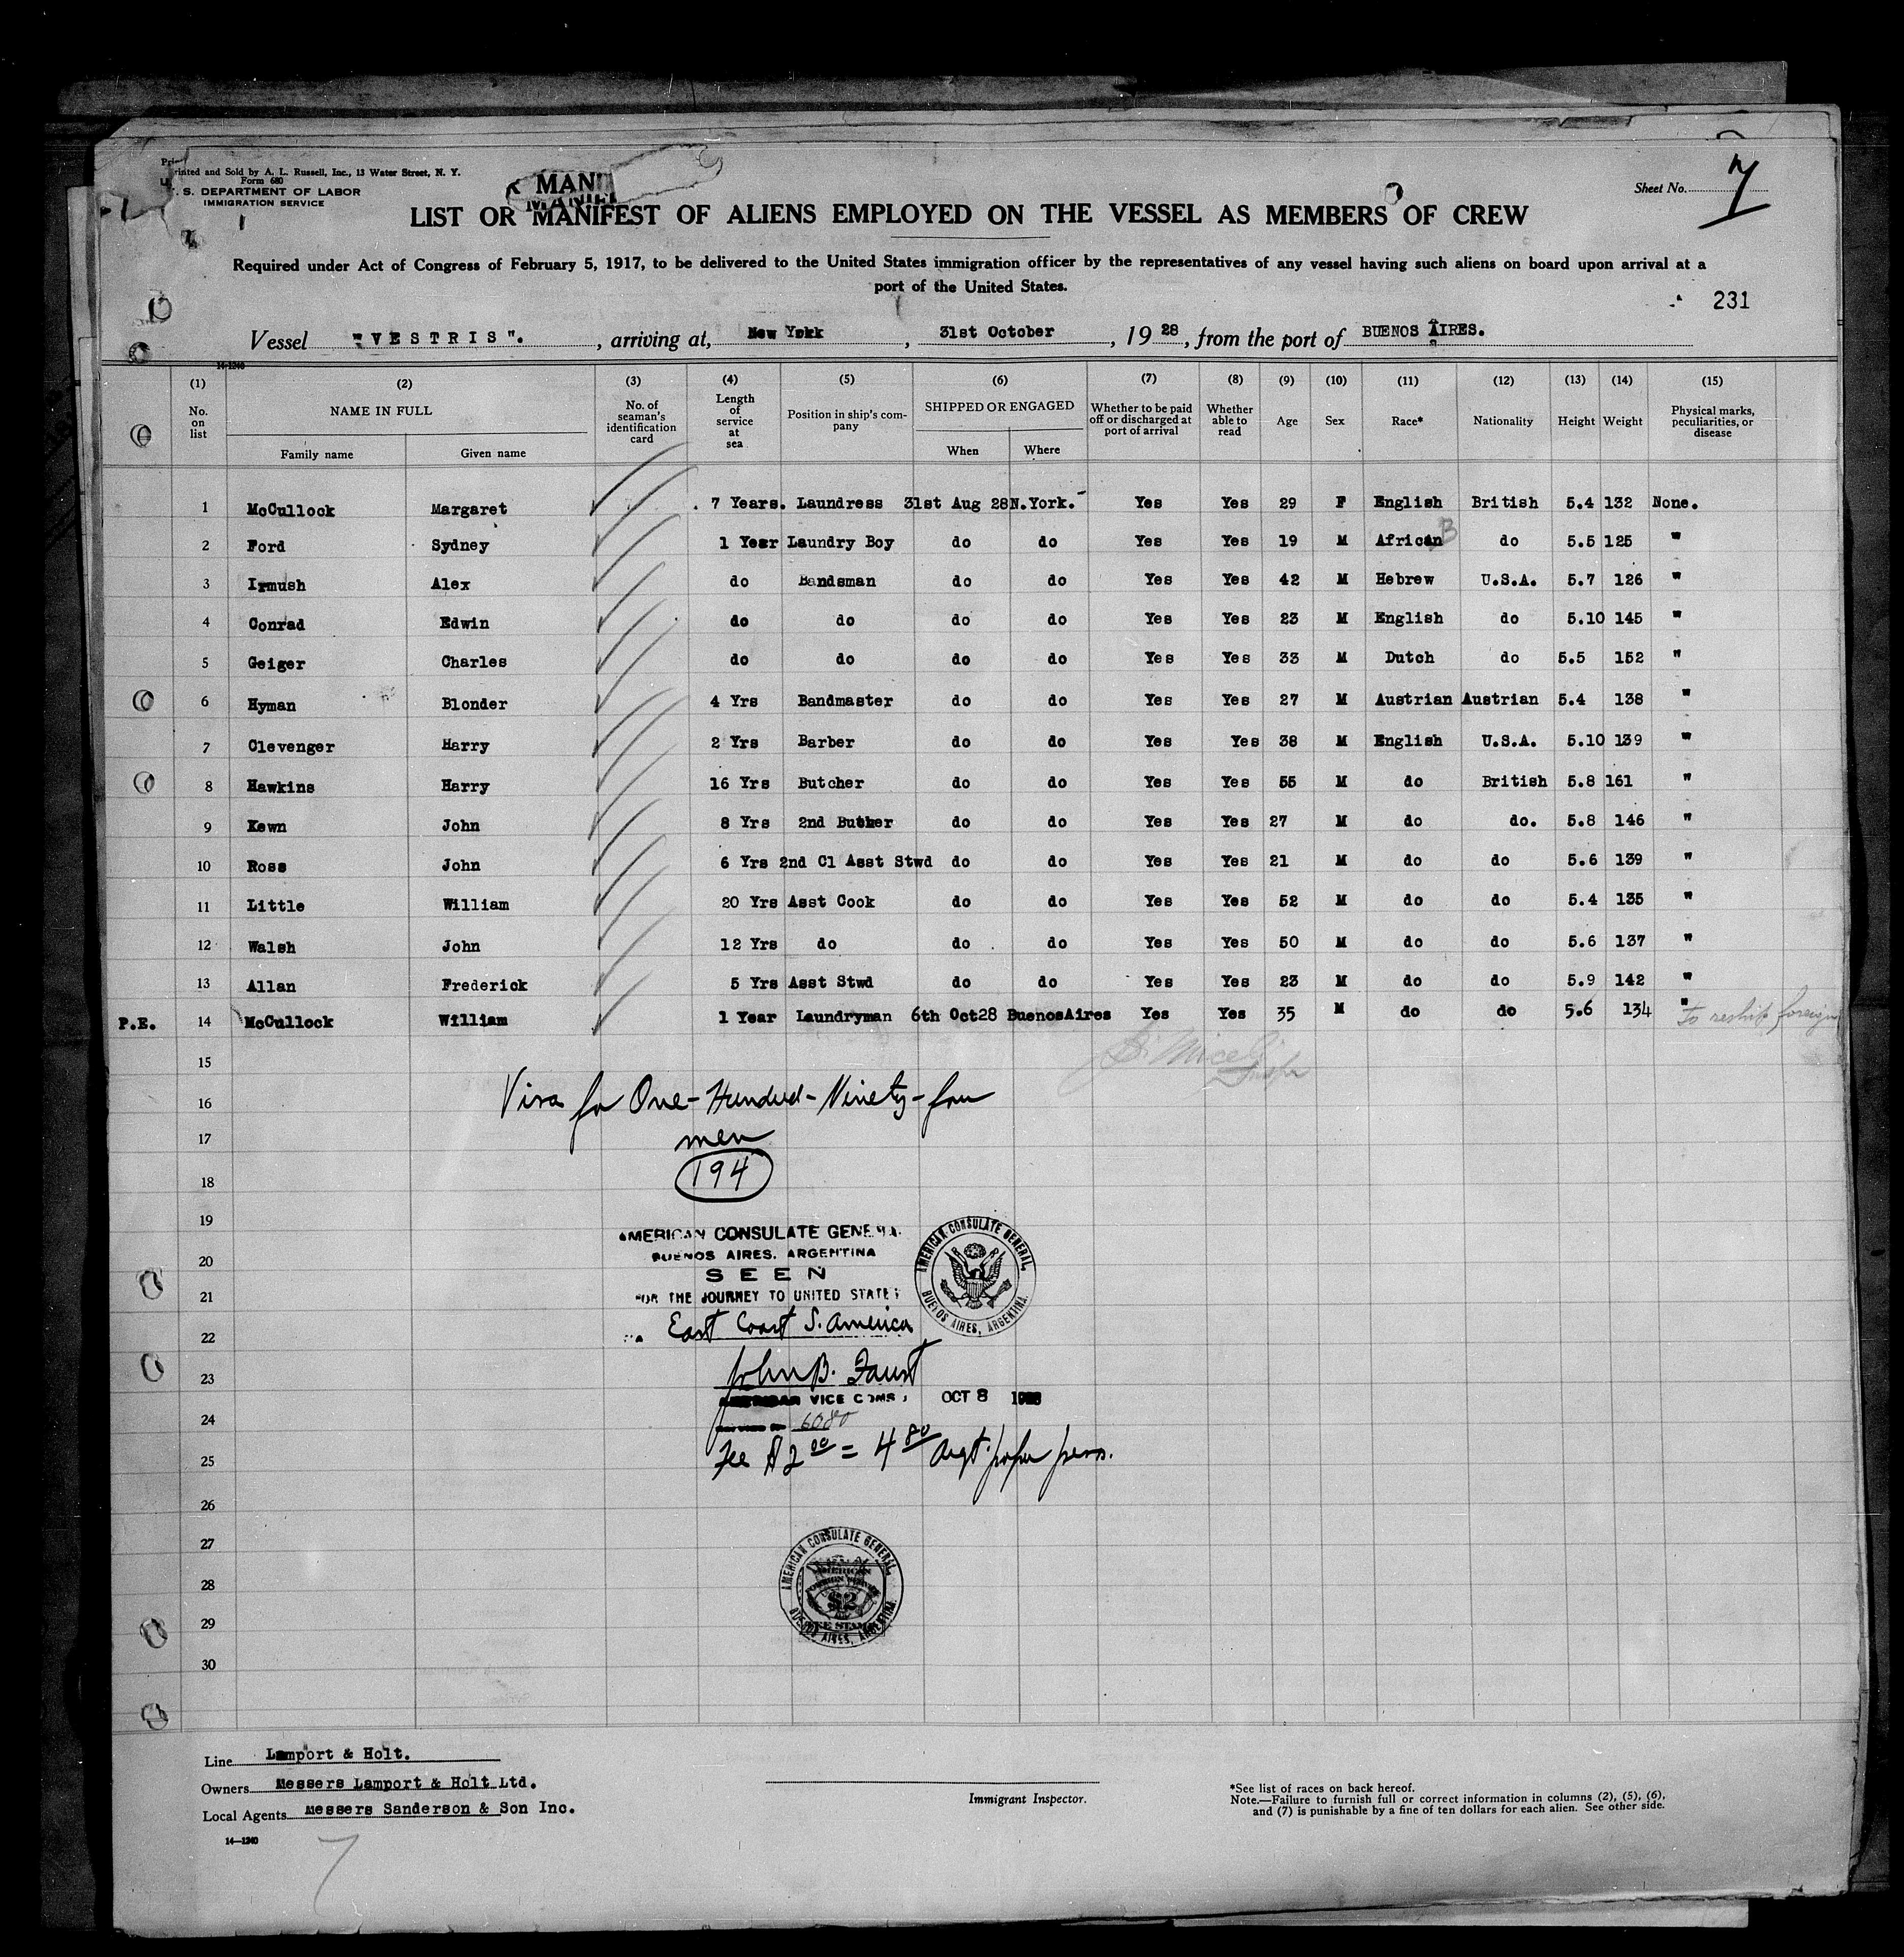 Printed and Sold by A. L. Russell, Inc., 13 Water Street, N. Y.
Form 680
U. S. DEPARTMENT OF LABOR
IMMIGRATION SERVICE
MANI
Sheet No. 7
LIST OR MANIFEST OF ALIENS EMPLOYED ON THE VESSEL AS MEMBERS OF CREW
Required under Act of Congress of February 5, 1917, to be delivered to the United States immigration officer by the representatives of any vessel having such aliens on board upon arrival at a
port of the United States.
231
Vessel "VESTRIS". , arriving at, New York , 31st October , 19 28 , from the port of BUENOS AIRES.
14-1240
(1) (2) (3) (4) (5) (6) (7) (8) (9) (10) (11) (12) (13) (14) (15)
No. on list NAME IN FULL Family name Given name No. of seaman's identification card Length of service at sea Position in ship's company SHIPPED OR ENGAGED When Where Whether to be paid off or discharged at port of arrival Whether able to read Age Sex Race* Nationality Height Weight Physical marks, peculiarities, or disease
1 McCullock Margaret 7 Years. Laundress 31st Aug 28 N.York. Yes Yes 29 F English British 5.4 132 None.
2 Ford Sydney 1 Year Laundry Boy do do Yes Yes 19 M African B do 5.5 125 "
3 Irmush Alex do Bandsman do do Yes Yes 42 M Hebrew U.S.A. 5.7 126 "
4 Conrad Edwin do do do do Yes Yes 23 M English do 5.10 145 "
5 Geiger Charles do do do do Yes Yes 33 M Dutch do 5.5 152 "
6 Hyman Blonder 4 Yrs Bandmaster do do Yes Yes 27 M Austrian Austrian 5.4 138 "
7 Clevenger Harry 2 Yrs Barber do do Yes Yes 38 M English U.S.A. 5.10 139 "
8 Hawkins Harry 16 Yrs Butcher do do Yes Yes 55 M do British 5.8 161 "
9 Kewn John 8 Yrs 2nd Buther do do Yes Yes 27 M do do. 5.8 146 "
10 Ross John 6 Yrs 2nd Cl Asst Stwd do do Yes Yes 21 M do do 5.6 139 "
11 Little William 20 Yrs Asst Cook do do Yes Yes 52 M do do 5.4 135 "
12 Walsh John 12 Yrs do do do Yes Yes 50 M do do 5.6 137 "
13 Allan Frederick 5 Yrs Asst Stwd do do Yes Yes 23 M do do 5.9 142 "
P.E. 14 McCullock William 1 Year Laundryman 6th Oct28 BuenosAires Yes Yes 35 M do do 5.6 134 "
To reship foreign
15
16 Visa for One-Hundred-Ninety-four
17 men
18 194
19 AMERICAN CONSULATE GENERAL
20 BUENOS AIRES, ARGENTINA
SEEN
21 FOR THE JOURNEY TO UNITED STATES
22 East Coast S. America
AMERICAN CONSULATE GENERAL, BUENOS AIRES, ARGENTINA.
23 John B. Faust
AMERICAN VICE CONSUL OCT 8 1928
24 6080
25 Fee $2.00 = 4.80 Argt. paper pesos.
26
27
28 AMERICAN CONSULATE GENERAL, BUENOS AIRES, ARGENTINA.
$2
29
30
Line Lamport & Holt.
Owners Messers Lamport & Holt Ltd.
Local Agents Messers Sanderson & Son Inc.
14-1240
7
Immigrant Inspector.
*See list of races on back hereof.
Note.—Failure to furnish full or correct information in columns (2), (5), (6),
and (7) is punishable by a fine of ten dollars for each alien. See other side.